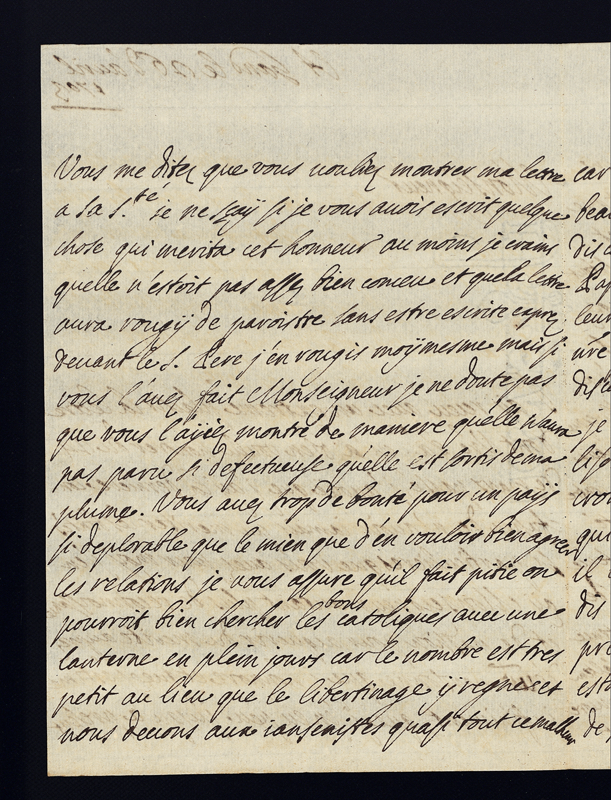 Vous me ditez que vous vouliez montrer ma lettre
a sa S.té je ne sçay si je vous avois escrit quelque
chose qui merita cet honneur au moins je crains
quelle n'estoit pas assez bien conceu et que la lettre
aura rougij de paroistre sans estre escrite exprez
devant le S. Pere j'en rougis moij mesme mais si
vous l'avez fait Monseigneur je ne doute pas
que vous l'ayiez montré de maniere quelle n'aura
pas paru si defectueuse qu'elle est sortis de ma
plume. Vous avez trop de bonté pour un païs
si deplorable que le mien que d'en vouloir bien agreer
les relations je vous assure qu'il fait pitie on
pourroit bien chercher les bons catoliques avec une
lanterne en plein jours car le nombre est tres
petit au lieu que le libertinage ij regne et
nous devons aux iansenistes quasi tout ce malheur
car
beau
leur
je
qui
il
dis
est
de